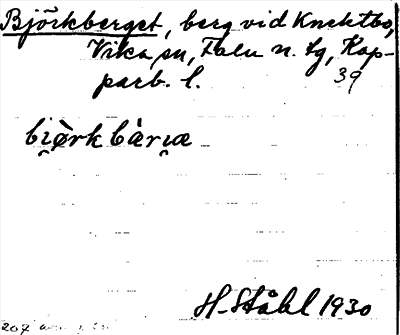 Björkberget, berg vid Knektbo,
Vika sn, Falu n. tg, Kop-
parb. l. 39
bi̯ö̀rkbæri̯æ
H. Ståhl 1930
207